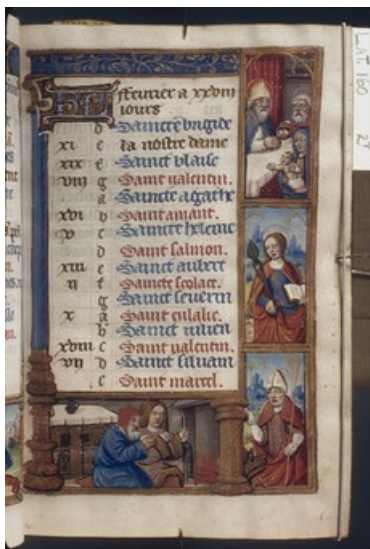 ffeurier a xxviii
iours
d Saincte brigide
xi e la nostre dame
xix f Sainct blaise
viii g Saint valentin.
a Saincte agathe
xvi b Saint amant.
v c Saincte heleine
d Saint salmon.
xiii e Sainct aubert
ii f Saincte scolace.
g Sainct seuerin
x a Saint eulalie.
b Sainct iulien
xviii c Saint valentin.
vii d Sainct siluain
e Saint marcel.
LAT. 160